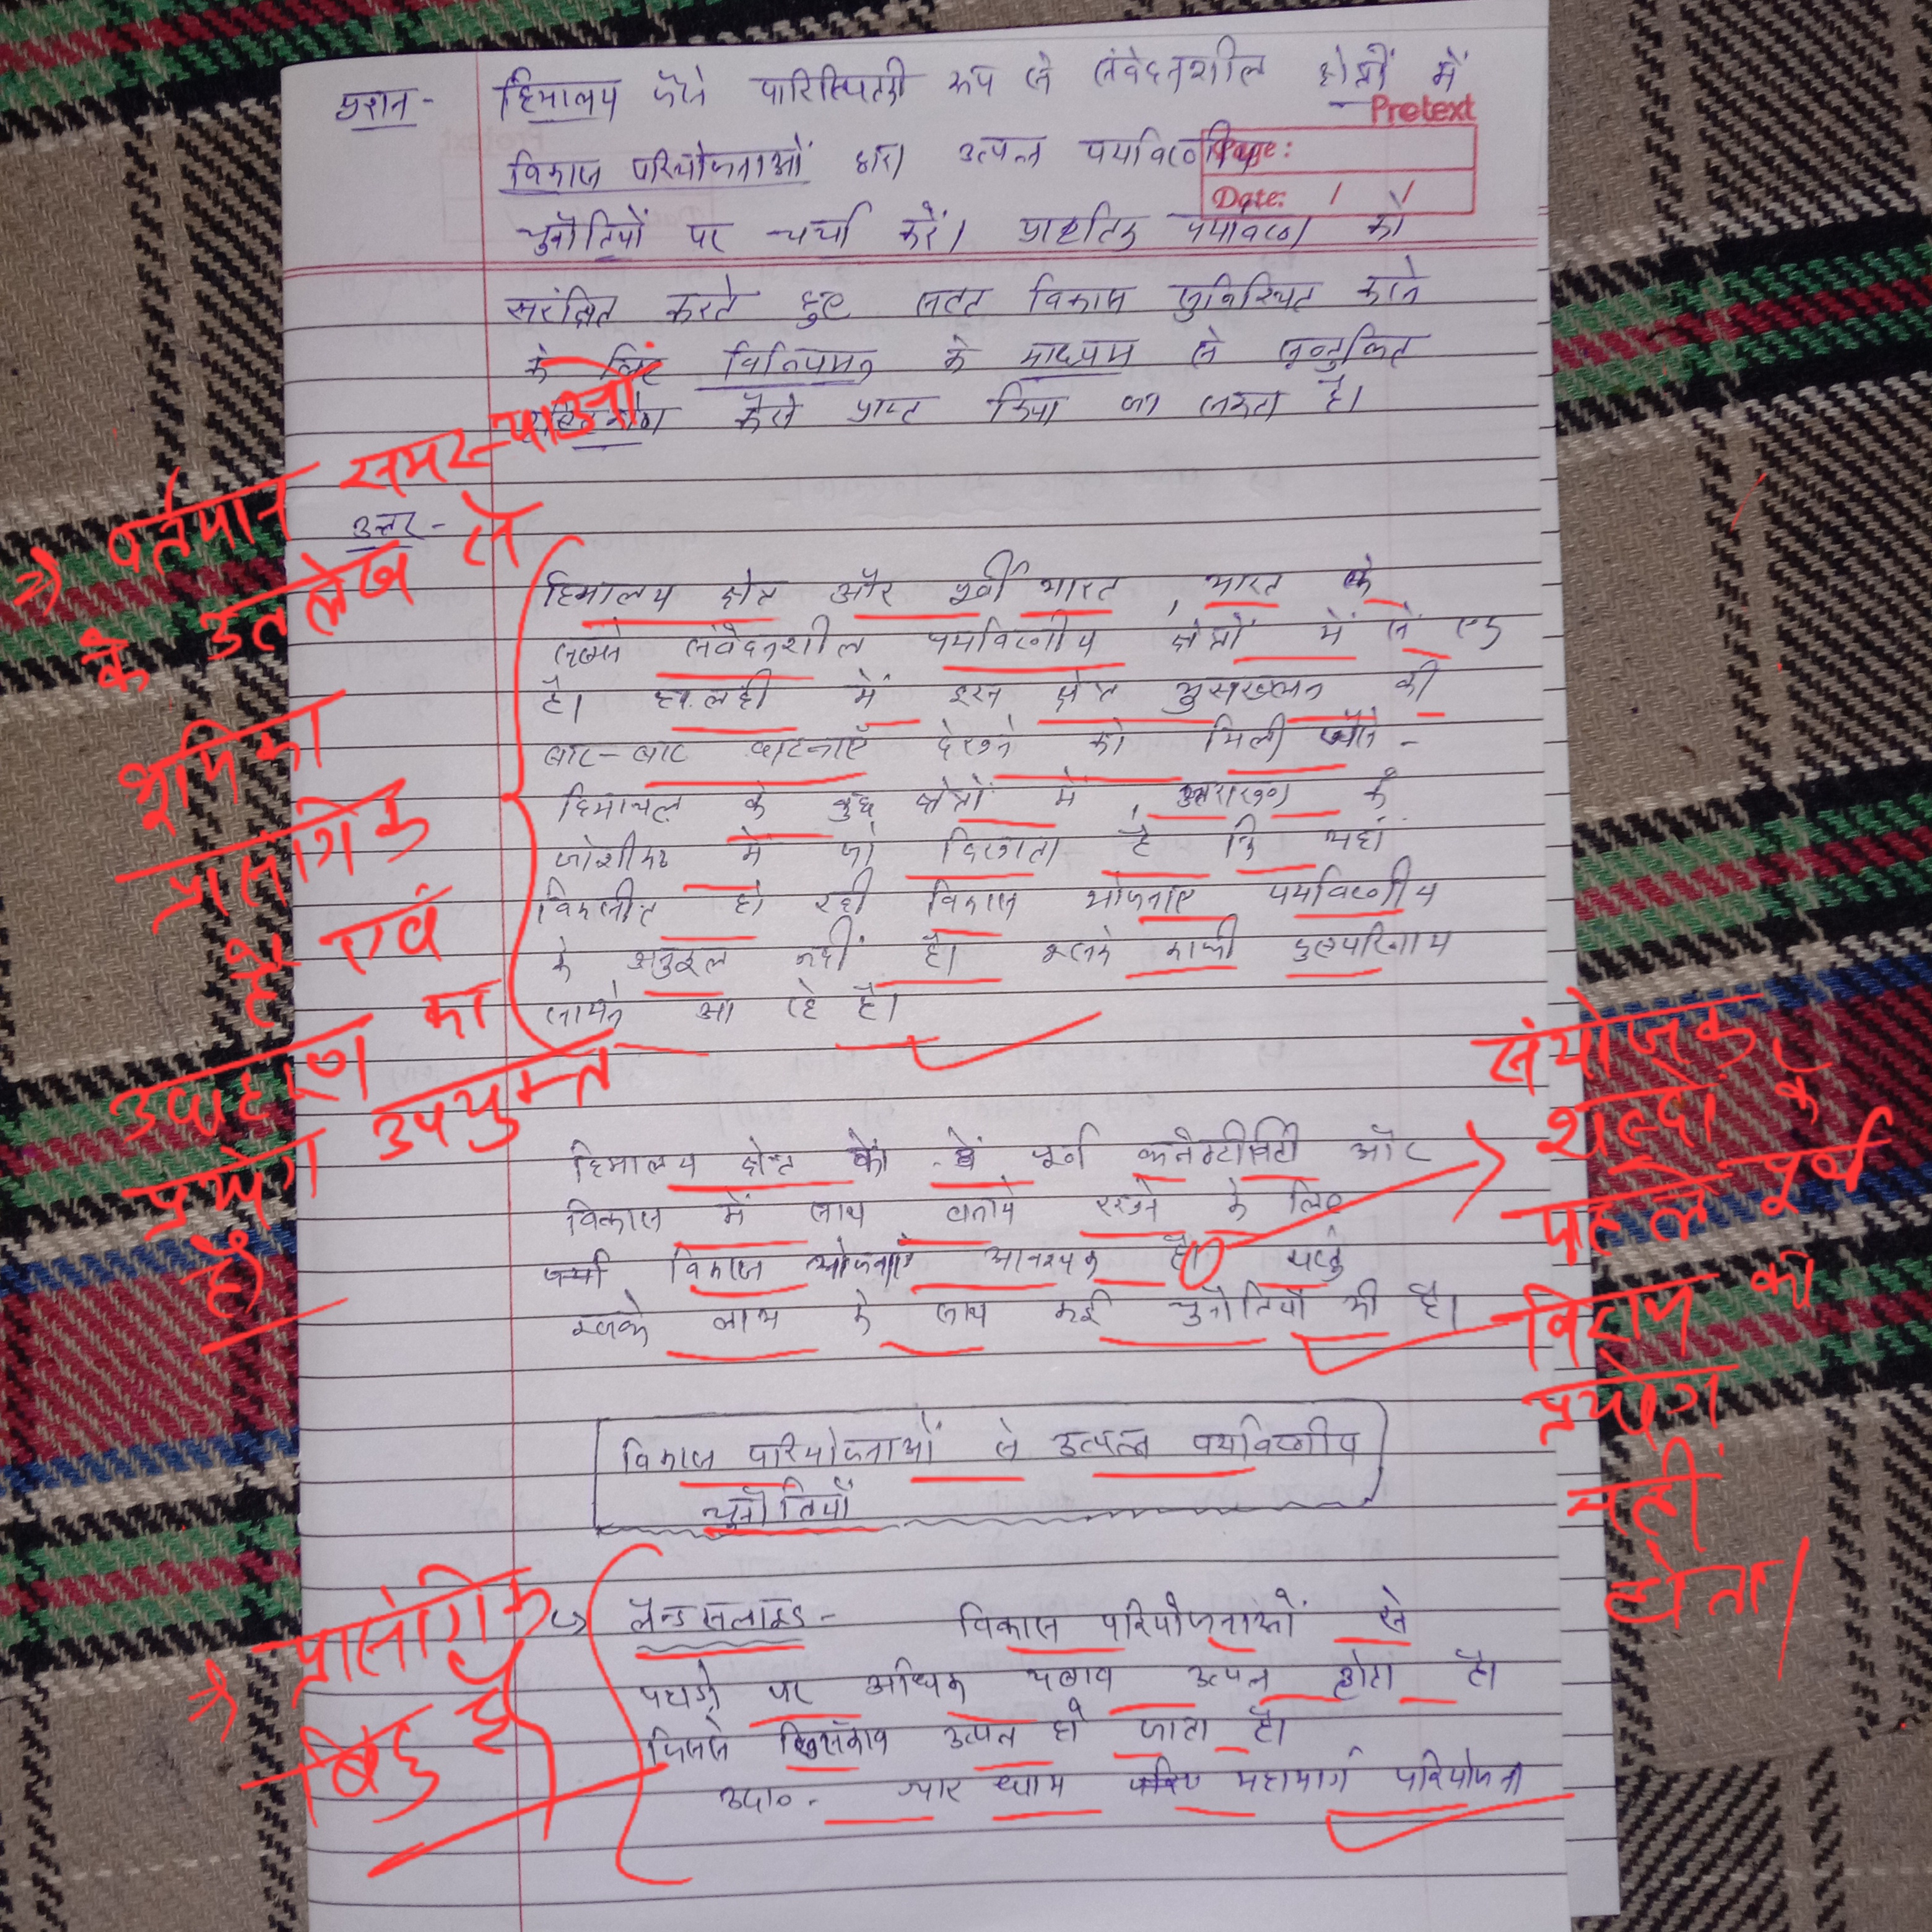 प्रश्न - हिमालय जैसे पारिस्थितिकी रूप से संवेदनशील क्षेत्रों में
Pretext
विकास परियोजनाओं द्वारा उत्पन्न पर्यावरणीय
Page:
Date: / /
चुनौतियों पर चर्चा करें। प्राकृतिक पर्यावरण को
संरक्षित करते हुए सतत विकास सुनिश्चित करने
के लिए विनियमन के माध्यम से सन्तुलित
कैसे प्राप्त किया जा सकता है।
उत्तर -
हिमालय क्षेत्र और पूर्वी भारत, भारत के
सबसे संवेदनशील पर्यावरणीय क्षेत्रों में से एक
है। हालही में इस क्षेत्र भुसख्लन की
बार-बार घटनाएँ देखने को मिली जैसे -
हिमाचल के कुछ क्षेत्रों में, उत्तराखण्ड के
जोशीमठ में जो दिखाता है कि यहां
विकसीत हो रही विकास योजनाए पर्यावरणीय
के अनुकूल नहीं है। इसके काफी दुष्परिणाम
सामने आ रहे है।
=> वर्तमान समस्याओं
के उल्लेख से
भूमिका
प्रासंगिक
है एवं
उदाहरण का
प्रयोग उपयुक्त
है
हिमालय क्षेत्र को पूर्ण कनेक्टीविटी और
विकास में साथ बनाये रखने के लिए
सभी विकास योजनाएं आवश्यक है। परन्तु
इसके लाभ के साथ कई चुनौतियाँ भी है।
संयोजक
शब्दों के
पहले पूर्व
विराम का
प्रयोग
नहीं
होता।
विकास परियोजनाओं से उत्पन्न पर्यावरणीय
चुनौतियाँ
लैन्डसलाइड - विकास परियोजनाओं से
पहाड़ो पर अधिक दबाव उत्पन्न होता है।
जिससे खिसकाव उत्पन्न हो जाता है।
उदा०- चार धाम महामार्ग परियोजना
=> प्रासंगिक
बिंदु है